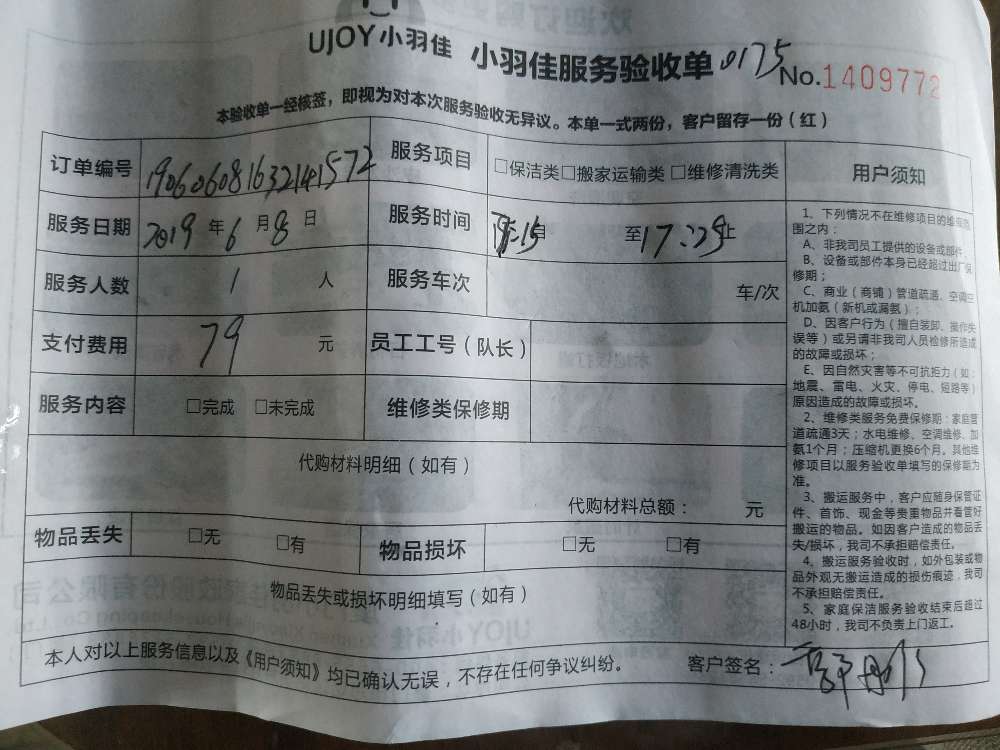 UJOY小羽佳 小羽佳服务验收单 0175 No.1409772
本验收单一经核签，即视为对本次服务验收无异议。本单一式两份，客户留存一份（红）
订单编号 190606081632141572 服务项目 □保洁类□搬家运输类 □维修清洗类
服务日期 2019 年 6 月 8 日 服务时间 自 至 止
服务人数 1 人 服务车次 车/次
支付费用 79 元 员工工号（队长）
服务内容 □完成 □未完成 维修类保修期
代购材料明细（如有）
代购材料总额： 元
物品丢失 □无 □有 物品损坏 □无 □有
物品丢失或损坏明细填写（如有）
本人对以上服务信息以及《用户须知》均已确认无误，不存在任何争议纠纷。 客户签名：
用户须知
1、下列情况不在维修项目的维保范
围之内：
A、非我司员工提供的设备或部件
B、设备或部件本身已经超过出厂保
修期；
C、商业（商铺）管道疏通、空调空
机加氨（新机或漏氨）；
D、因客户行为（擅自装卸、操作失
误等）或另请非我司人员检修所造成
的故障或损坏；
E、因自然灾害等不可抗拒力（如：
地震、雷电、火灾、停电、短路等）
原因造成的故障或损坏。
2、维修类服务免费保修期：家庭管
道疏通3天；水电维修、空调维修、加
氨1个月；压缩机更换6个月。其他维
修项目以服务验收单填写的保修期为
准。
3、搬运服务中，客户应随身保管证
件、首饰、现金等贵重物品并看管好
搬运的物品。如因客户造成的物品丢
失/损坏，我司不承担赔偿责任。
4、搬运服务验收时，如外包装或物
品外观无搬运造成的损伤痕迹，我司
不承担赔偿责任。
5、家庭保洁服务验收结束后超过
48小时，我司不负责上门返工。